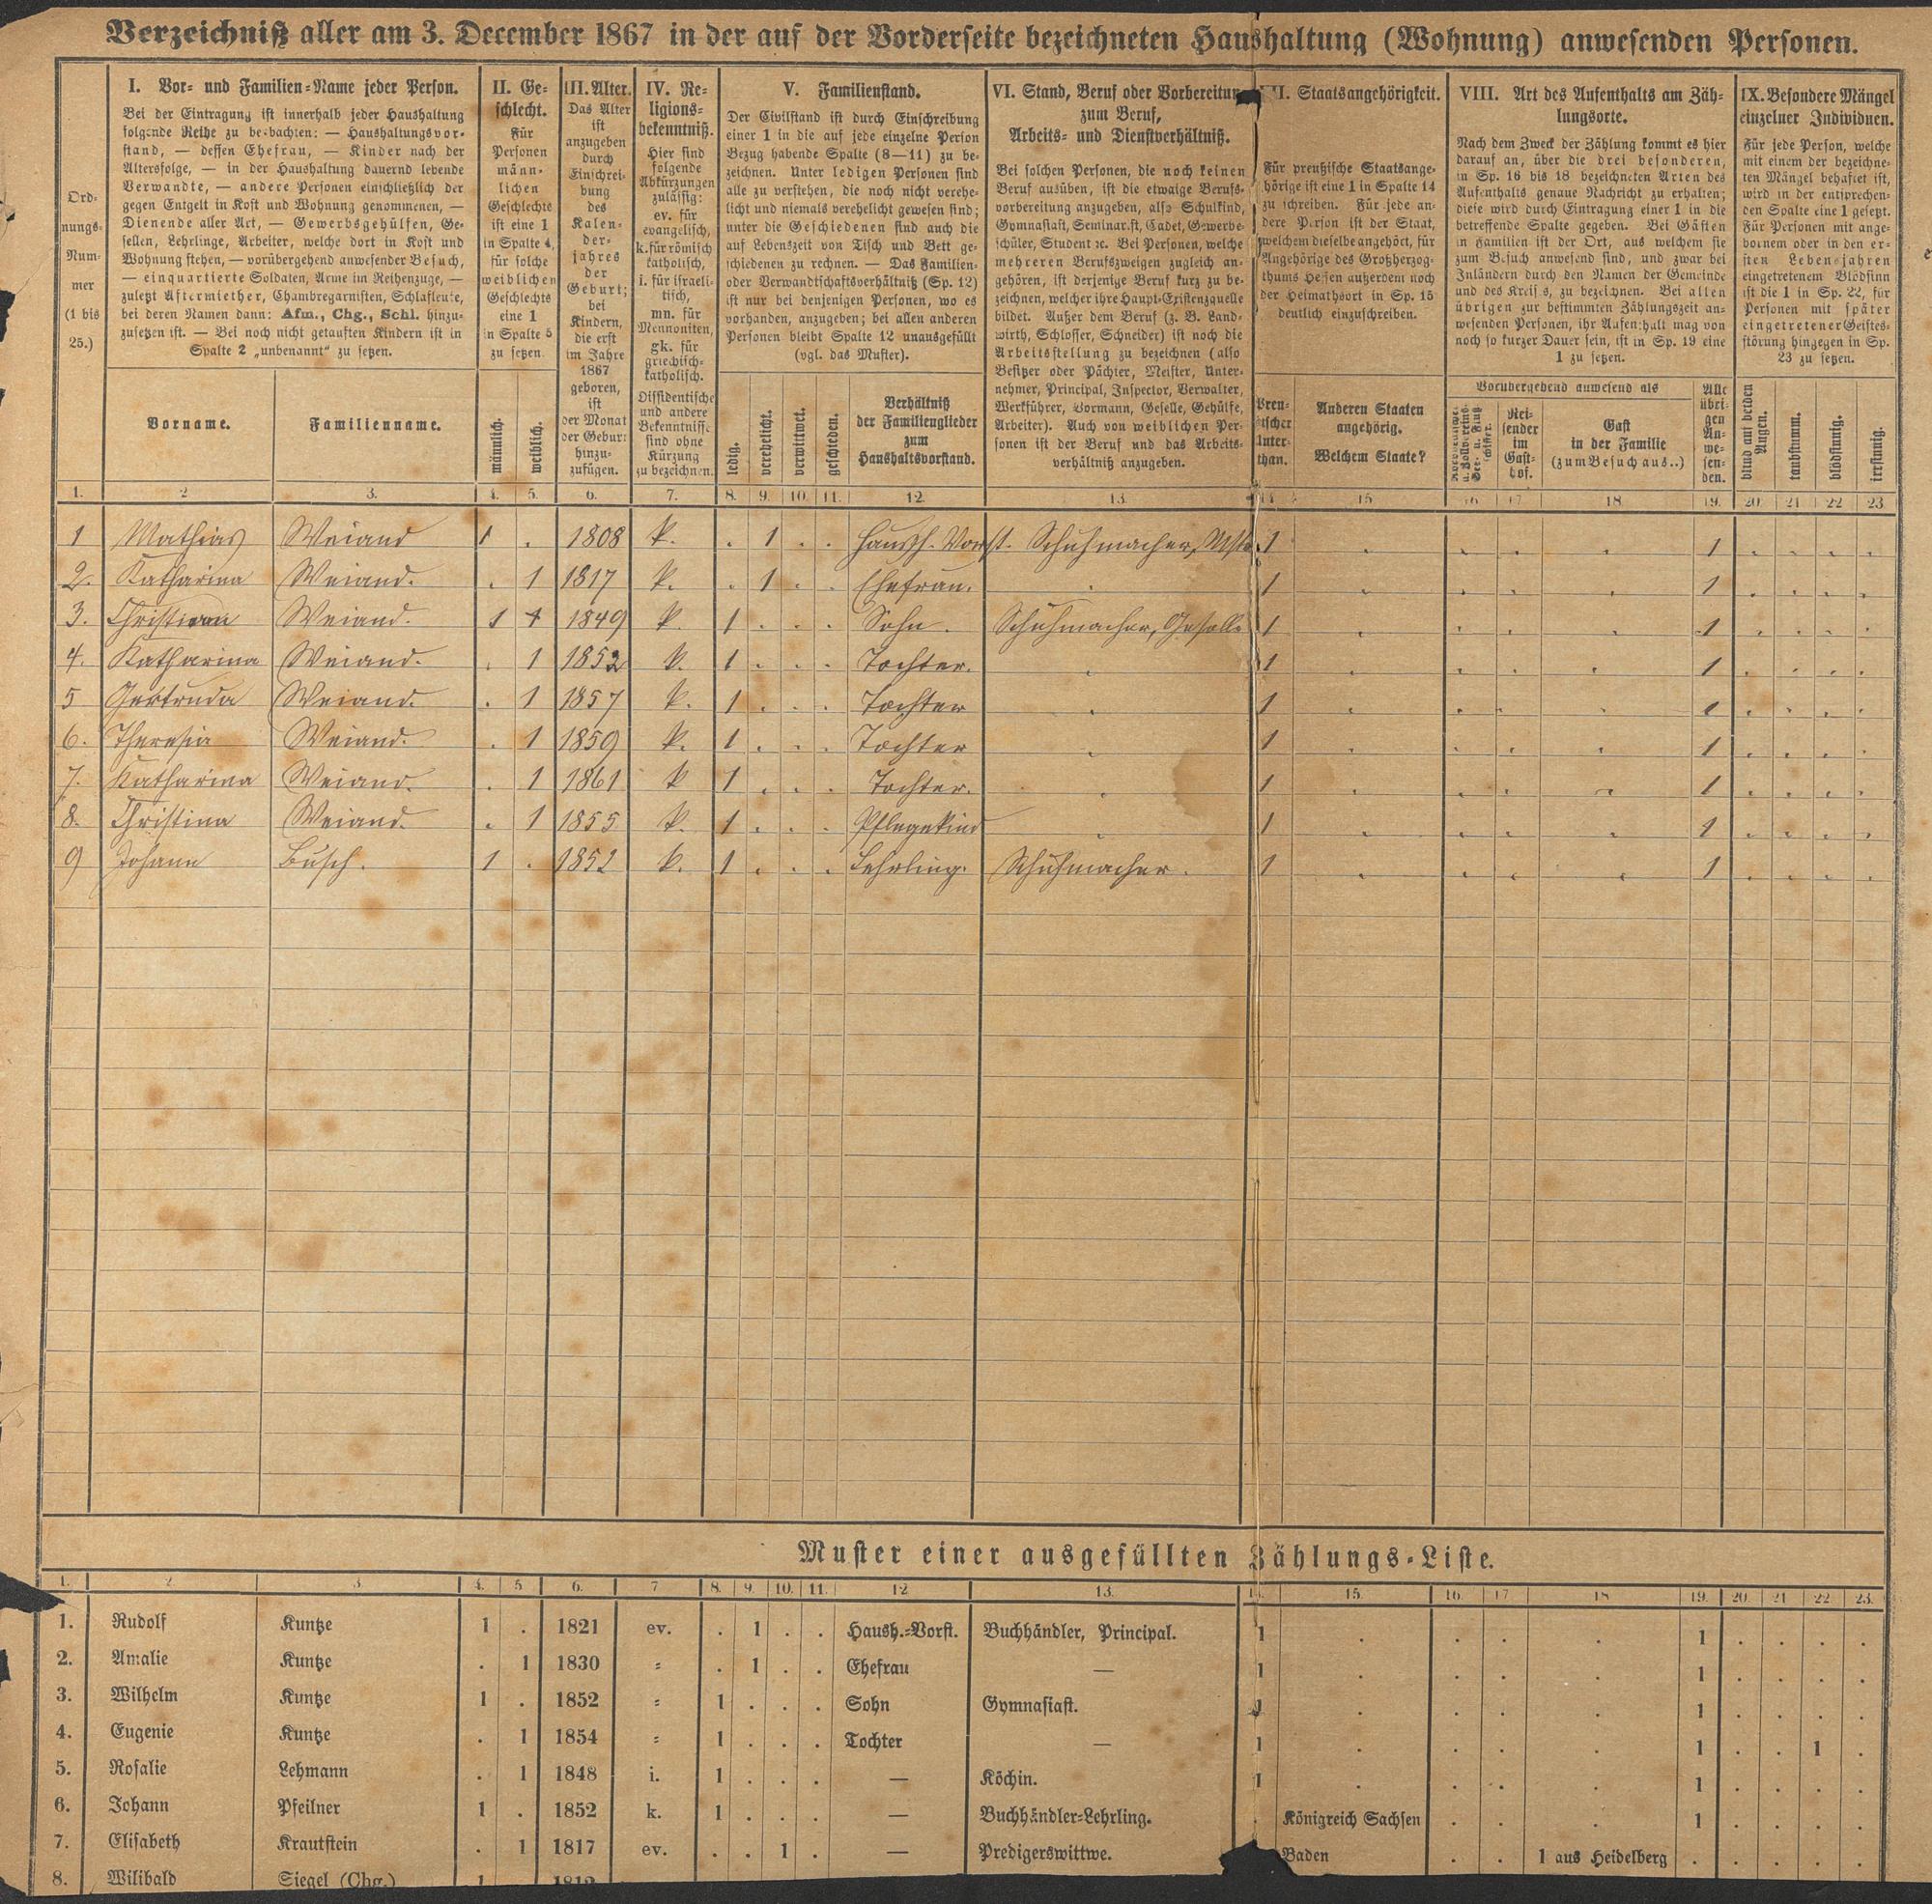 Verzeichniß aller am 3. December 1867 in der auf der Vorderseite bezeichneten Haushaltung (Wohnung) anwesenden Personen.
Ord-
nungs-
Num-
mer
(1 bis
25.)
I. Vor- und Familien-Name jeder Person.
Bei der Eintragung ist innerhalb jeder Haushaltung
folgende Reihe zu beobachten: — Haushaltungsvor-
stand, — dessen Ehefrau, — Kinder nach der
Altersfolge, — in der Haushaltung dauernd lebende
Verwandte, — andere Personen einschließlich der
gegen Entgelt in Kost und Wohnung genommenen, —
Dienende aller Art, — Gewerbsgehülfen, Ge-
sellen, Lehrlinge, Arbeiter, welche dort in Kost und
Wohnung stehen, — vorübergehend anwesender Besuch,
— einquartierte Soldaten, Arme im Reihenzuge, —
zuletzt Aftermiether, Chambregarnisten, Schlafleute,
bei deren Namen dann: Afm., Chg., Schl. hinzu-
zusetzen ist. — Bei noch nicht getauften Kindern ist in
Spalte 2 „unbenannt“ zu setzen.
Vorname.
Familienname.
II. Ge-
schlecht.
Für
Personen
männ-
lichen
Geschlechts
ist eine 1
in Spalte 4,
für solche
weiblichen
Geschlechts
eine 1
in Spalte 5
zu setzen.
männlich.
weiblich.
III. Alter.
Das Alter
ist
anzugeben
durch
Einschrei-
bung
des
Kalen-
der-
jahres
der
Geburt;
bei
Kindern,
die erst
im Jahre
1867
geboren,
ist
der Monat
der Geburt
hinzu-
zufügen.
IV. Re-
ligions-
bekenntniß.
Hier sind
folgende
Abkürzungen
zulässig:
ev. für
evangelisch,
k. für römisch
katholisch,
i. für israeli-
tisch,
mn. für
Mennoniten,
gk. für
griechisch-
katholisch.
Dissidentische
und andere
Bekenntnisse
sind ohne
Kürzung
zu bezeichnen.
V. Familienstand.
Der Civilstand ist durch Einschreibung
einer 1 in die auf jede einzelne Person
Bezug habende Spalte (8—11) zu be-
zeichnen. Unter ledigen Personen sind
alle zu verstehen, die noch nicht verehe-
licht und niemals verehelicht gewesen sind;
unter die Geschiedenen sind auch die
auf Lebenszeit von Tisch und Bett ge-
schiedenen zu rechnen. — Das Familien-
oder Verwandtschaftsverhältniß (Sp. 12)
ist nur bei denjenigen Personen, wo es
vorhanden, anzugeben; bei allen anderen
Personen bleibt Spalte 12 unausgefüllt
(vgl. das Muster).
ledig.
verehelicht.
verwittwet.
geschieden.
Verhältniß
der Familienglieder
zum
Haushaltsvorstand.
VI. Stand, Beruf oder Vorbereitung
zum Beruf,
Arbeits- und Dienstverhältniß.
Bei solchen Personen, die noch keinen
Beruf ausüben, ist die etwaige Berufs-
vorbereitung anzugeben, also Schulkind,
Gymnasiast, Seminarist, Cadet, Gewerbe-
schüler, Student ec. Bei Personen, welche
mehreren Berufszweigen zugleich an-
gehören, ist derjenige Beruf kurz zu be-
zeichnen, welcher ihre Haupt-Existenzquelle
bildet. Außer dem Beruf (z. B. Land-
wirth, Schlosser, Schneider) ist noch die
Arbeitsstellung zu bezeichnen (also
Besitzer oder Pächter, Meister, Unter-
nehmer, Principal, Inspector, Verwalter,
Werkführer, Vormann, Geselle, Gehülfe,
Arbeiter). Auch von weiblichen Per-
sonen ist der Beruf und das Arbeits-
verhältniß anzugeben.
VII. Staatsangehörigkeit.
Für preußische Staatsange-
hörige ist eine 1 in Spalte 14
zu schreiben. Für jede an-
dere Person ist der Staat,
welchem dieselbe angehört, für
Angehörige des Großherzog-
thums Hessen außerdem noch
der Heimathsort in Sp. 15
deutlich einzuschreiben.
Preu-
ßischer
Unter-
than.
Anderen Staaten
angehörig.
Welchem Staate?
VIII. Art des Aufenthalts am Zäh-
lungsorte.
Nach dem Zweck der Zählung kommt es hier
darauf an, über die drei besonderen,
in Sp. 16 bis 18 bezeichneten Arten des
Aufenthalts genaue Nachricht zu erhalten;
diese wird durch Eintragung einer 1 in die
betreffende Spalte gegeben. Bei Gästen
in Familien ist der Ort, aus welchem sie
zum Besuch anwesend sind, und zwar bei
Inländern durch den Namen der Gemeinde
und des Kreises, zu bezeichnen. Bei allen
übrigen zur bestimmten Zählungszeit an-
wesenden Personen, ihr Aufenthalt mag von
noch so kurzer Dauer sein, ist in Sp. 19 eine
1 zu setzen.
Vorübergehend anwesend als
Rei-
sender
im
Gast-
hof.
Gast
in der Familie
(zum Besuch aus..)
Alle
übri-
gen
An-
we-
sen-
den.
IX. Besondere Mängel
einzelner Individuen.
Für jede Person, welche
mit einem der bezeichne-
ten Mängel behaftet ist,
wird in der entsprechen-
den Spalte eine 1 gesetzt.
Für Personen mit ange-
bornem oder in den er-
sten Lebensjahren
eingetretenem Blödsinn
ist die 1 in Sp. 22, für
Personen mit später
eingetretener Geistes-
störung hingegen in Sp.
23 zu setzen.
blind auf beiden Augen.
taubstumm.
blödsinnig.
irrsinnig.
1. 2 3. 4. 5. 6. 7. 8. 9. 10. 11. 12. 13. 14. 15 16 17. 18 19. 20. 21 22 23
1 Mathias Weiand 1 . 1808 k. . 1 . . Haush. Vorst. Schuhmacher, Mstr. 1 . . . . 1 . . . .
2. Katharina Weiand. . 1 1817 k. . 1 . . Ehefrau. . 1 . . . . 1 . . . .
3. Christian Weiand. 1 1849 k. 1 . . . Sohn. Schuhmacher, Geselle 1 . . . . 1 . . . .
4. Katharina Weiand. . 1 1852 k. 1 . . . Tochter. . 1 . . . . 1 . . . .
5 Gertruda Weiand. . 1 1857 k. 1 . . . Tochter . 1 . . . . 1 . . . .
6. Theresia Weiand. . 1 1859 k. 1 . . . Tochter . 1 . . . . 1 . . . .
7. Katharina Weiand. . 1 1861 k 1 . . . Tochter. . 1 . . . . 1 . . . .
8. Christina Weiand. . 1 1855 k. 1 . . . Pflegekind . 1 . . . . 1 . . . .
9 Johann Busch. 1 . 1852 k. 1 . . . Lehrling. Schuhmacher. 1 . . . . 1 . . . .
Muster einer ausgefüllten Zählungs-Liste.
1. 2 3 4. 5 6. 7 8. 9. 10. 11. 12 13. 14. 15. 16. 17 18 19. 20. 21 22 23.
1. Rudolf Kuntze 1 . 1821 ev. . 1 . . Haush.-Vorst. Buchhändler, Principal. 1 . . . . 1 . . . .
2. Amalie Kuntze . 1 1830 = . 1 . . Ehefrau — 1 . . . . 1 . . . .
3. Wilhelm Kuntze 1 . 1852 = 1 . . . Sohn Gymnasiast. 1 . . . . 1 . . . .
4. Eugenie Kuntze . 1 1854 = 1 . . . Tochter — 1 . . . . 1 . . 1 .
5. Rosalie Lehmann . 1 1848 i. 1 . . . — Köchin. 1 . . . . 1 . . . .
6. Johann Pfeilner 1 . 1852 k. 1 . . . — Buchhändler-Lehrling. . Königreich Sachsen . . . 1 . . . .
7. Elisabeth Krautstein . 1 1817 ev. . . 1 . — Predigerswittwe. Baden . . 1 aus Heidelberg . . . . .
8. Wilibald Siegel (Chg.) 1 1812